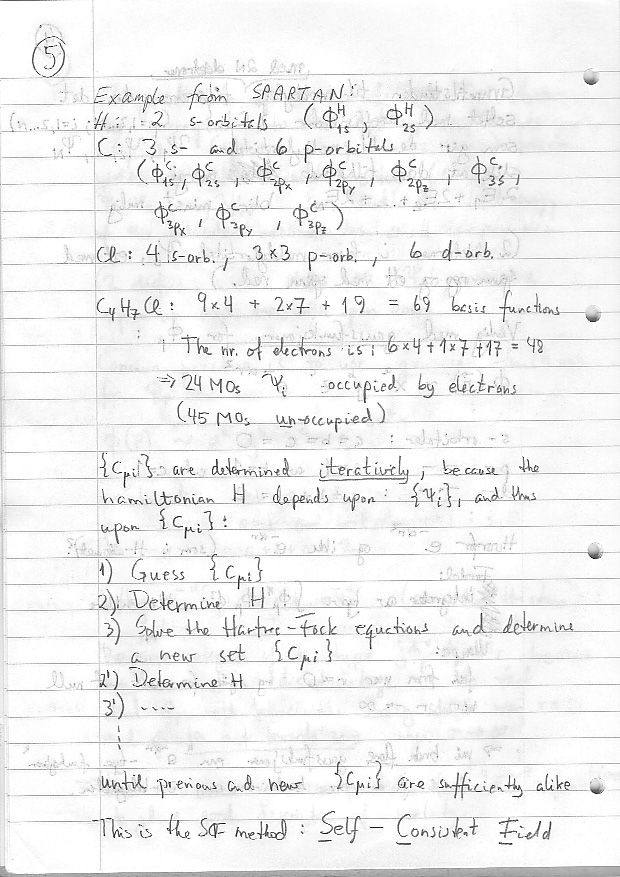 5
Example from SPARTAN:
H: 2 s-orbitals (Φ^H_1s, Φ^H_2s)
C: 3 s- and 6 p-orbitals
(Φ^C_1s, Φ^C_2s, Φ^C_2px, Φ^C_2py, Φ^C_2pz, Φ^C_3s,
Φ^C_3px, Φ^C_3py, Φ^C_3pz)
Cl: 4 s-orb., 3×3 p-orb., 6 d-orb.
C₄H₇Cl: 9×4 + 2×7 + 19 = 69 basis functions
The nr. of electrons is: 6×4+1×7+17 = 48
⇒ 24 MOs Ψi occupied by electrons
(45 MOs un-occupied)
{Cμi} are determined iteratively, because the
hamiltonian H depends upon {Ψi}, and thus
upon {Cμi}:
1) Guess {Cμi}
2) Determine H
3) Solve the Hartree-Fock equations and determine
a new set {Cμi}
2') Determine H
3') ....
until previous and new {Cμi} are sufficiently alike
This is the SCF method: Self - Consistent Field